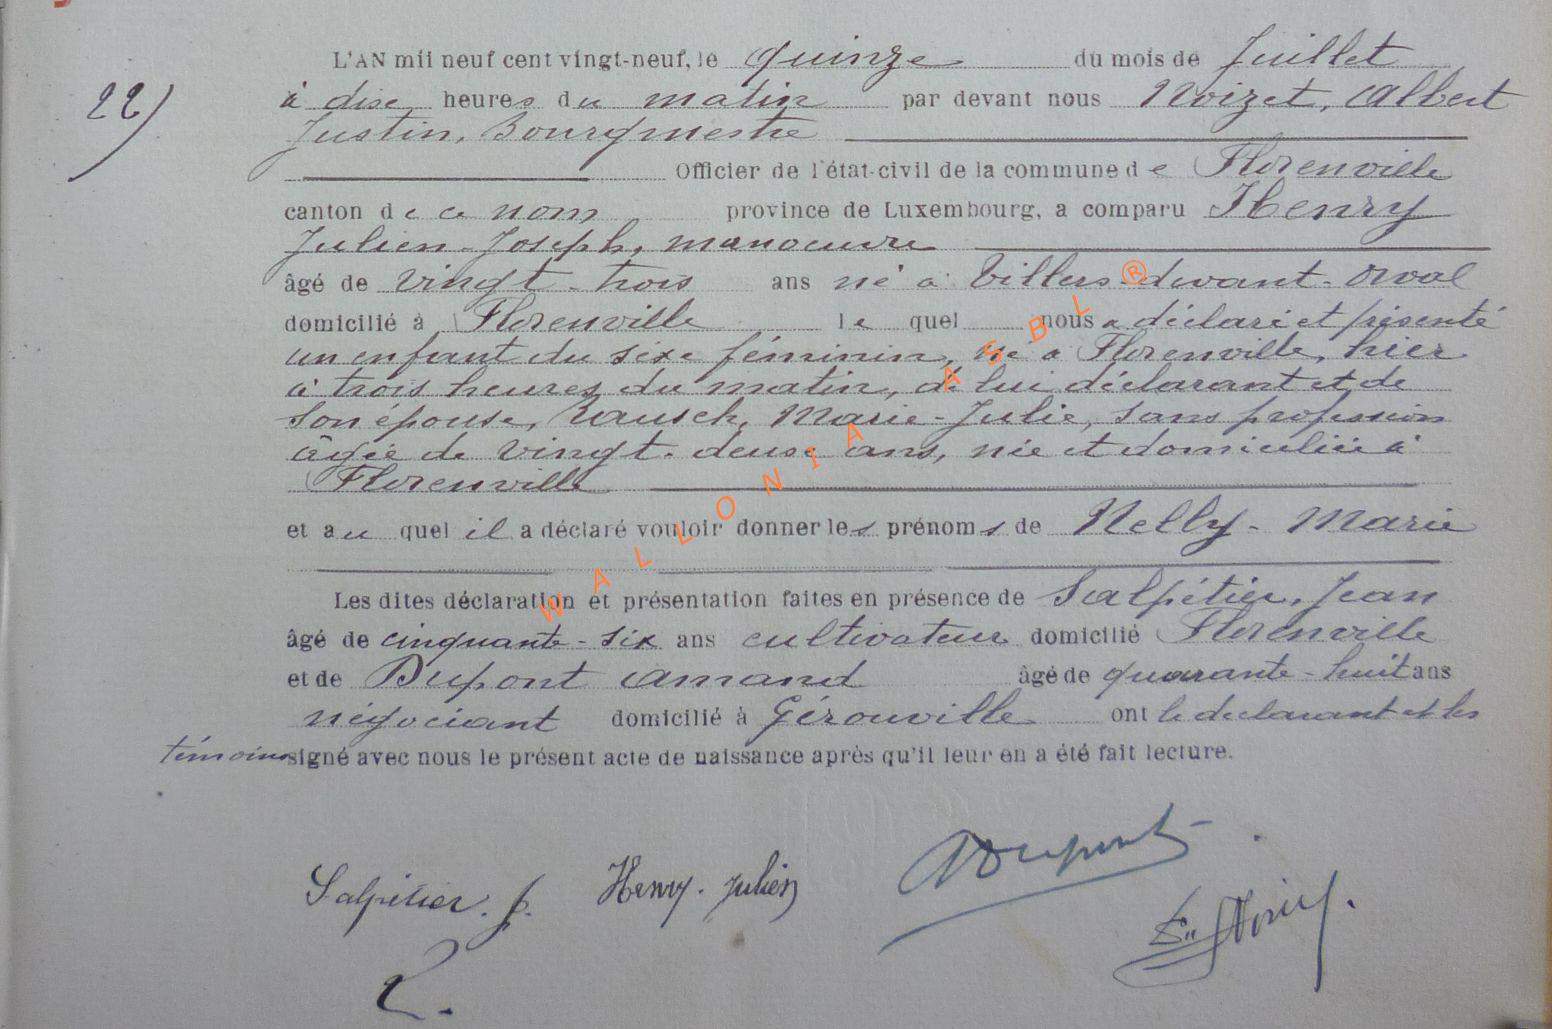 L'AN mil neuf cent vingt-neuf, le quinze du mois de Juillet
22) à dix heures du matin par devant nous Noizet, Albert
Justin, Bourgmestre
Officier de l'état-civil de la commune de Florenville
canton de ce nom province de Luxembourg, a comparu Henry
Julien-Joseph, manoeuvre
âgé de vingt-trois ans né à Villers-devant-Orval
domicilié à Florenville lequel nous a déclaré et présenté
un enfant du sexe féminin, né à Florenville, hier
à trois heures du matin, de lui déclarant et de
son épouse, Rausch, Marie-Julie, sans profession
âgée de vingt-deux ans, née et domiciliée à
Florenville
et auquel il a déclaré vouloir donner les prénoms de Nelly-Marie
Les dites déclaration et présentation faites en présence de Salpétier, Jean
âgé de cinquante-six ans cultivateur domicilié Florenville
et de Dupont Amand âgé de quarante-huit ans
négociant domicilié à Gérouville ont le déclarant et les
témoins signé avec nous le présent acte de naissance après qu'il leur en a été fait lecture.
WALLONIA ASBL ®
Salpétier. J. Henry. Julien ADupont